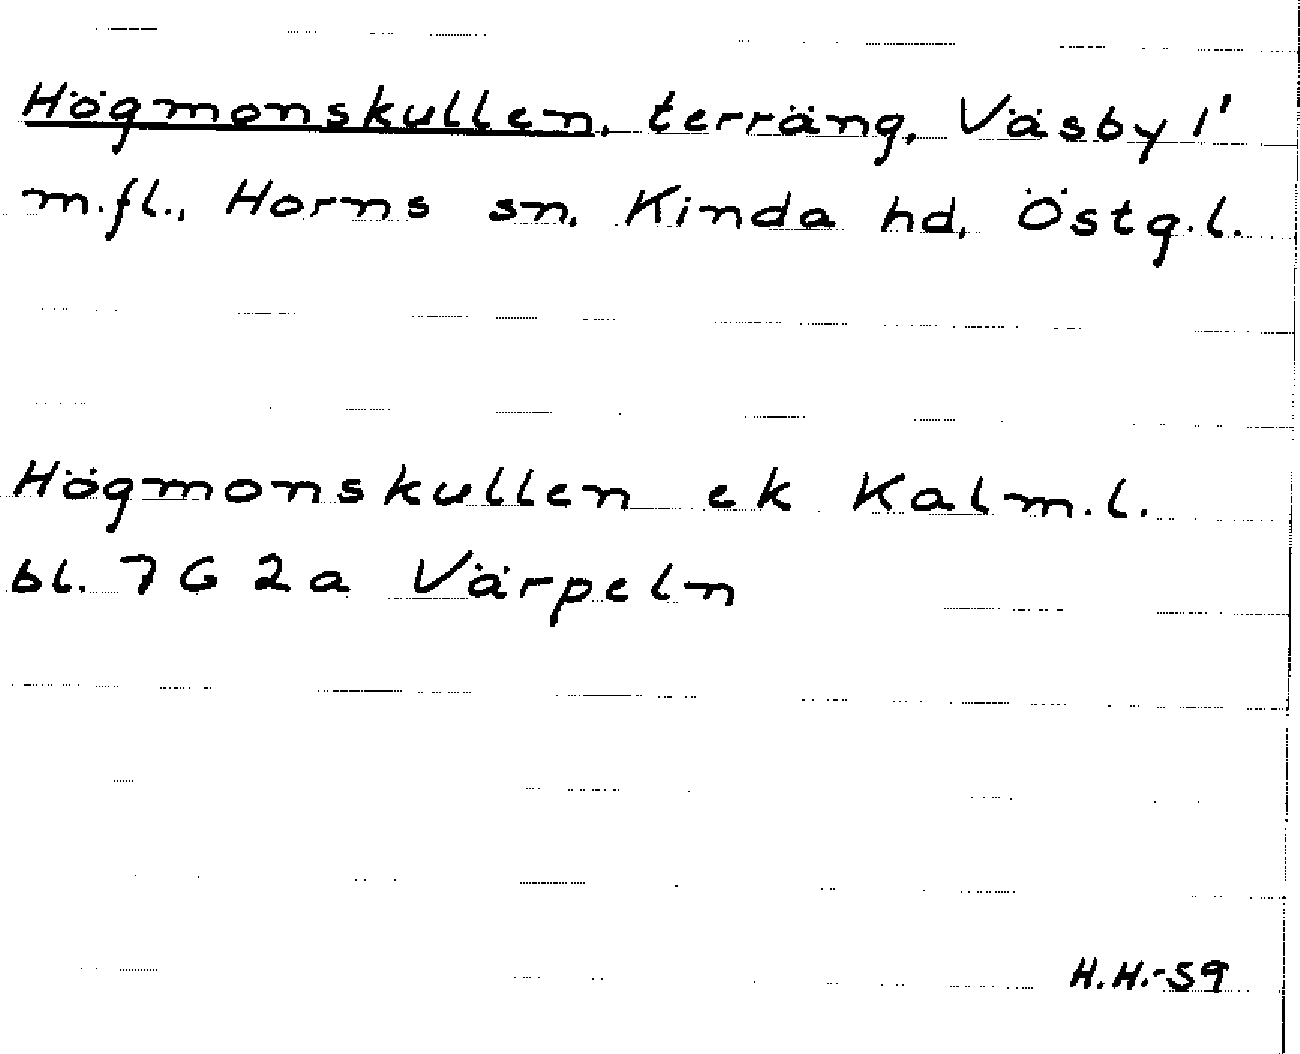 Högmonskullen, terräng, Väsby 1'
m.fl., Horns sn, Kinda hd, Östg.l.
Högmonskullen ek Kalm.l.
bl. 7 G 2 a Värpeln
H.H.-59